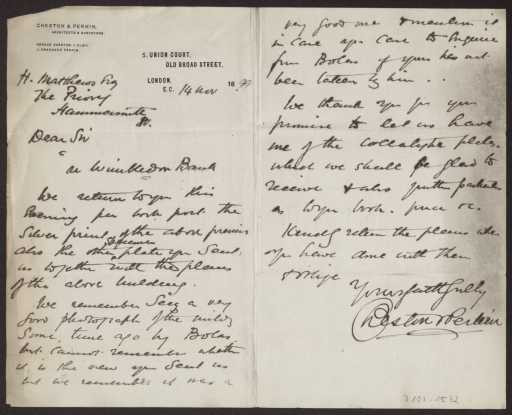 CHESTON & PERKIN,
ARCHITECTS & SURVEYORS
HORACE CHESTON, F.R.I.B.A.
J. CRADDOCK PERKIN.
5, UNION COURT,
OLD BROAD STREET,
LONDON,
E.C. 14 Nov 18
H. Matthews Esq
The Priory
Hammersmith
W.
Dear Sir
"re Wimbledon Bank"
We return to you this
Evening per book post the
Silver print of the above premises
also the other specimen plate you sent
us together with the plans
of the above building.
We remember seeing a very
good photograph of the building
some time ago by Bolas
but cannot remember whether
it is the one you sent us
but we remember it was a
very good one & mention it
in case you care to enquire
from Bolas if yours has not
been taken by him . .
We thank you for your
promise to let us have
one of the collotype plates
which we shall be glad to
receive & also further particulars
as to your book. price &c.
Kindly return the plans when
you have done with them
& oblige
Yours faithfully
Cheston & Perkin